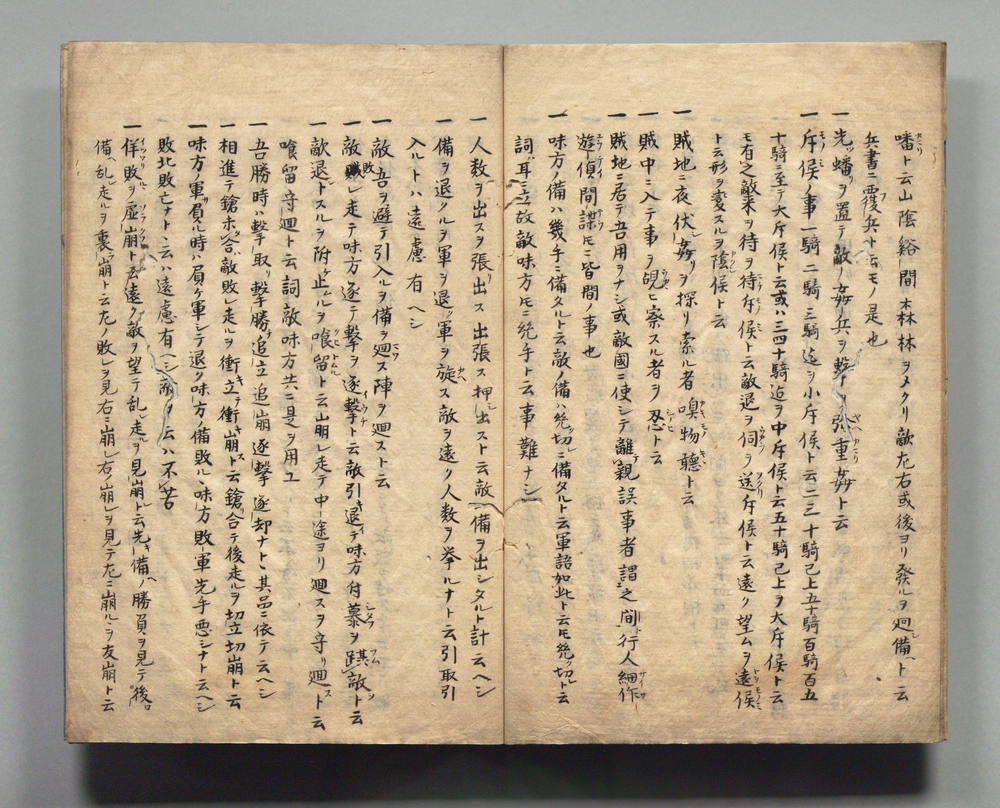 蟠ト云山陰谿間森林ヲメクリ敵左右或後ヨリ發ルヲ廻備ト云
兵書ニ覆兵ト云モノ是也
一先蟠ヲ置テ敵ノ姧兵ヲ撃ヲ張重姧ト云
一斥候ノ事一騎二騎三騎迄ヲ小斥候ト云二三十騎已上五十騎百騎百五
十騎ニ至テ大斥候ト云或ハ三四十騎迄ヲ中斥候ト云五十騎已上ヲ大斥候ト云
モ有之敵来ヲ待ヲ待斥候ト云敵退ヲ伺ヲ送斥候ト云遠ク望ムヲ遠候
ト云形ヲ変スルヲ陰候ト云
一賊地ニ夜伏姧リヲ探リ索ル者嗅物聴ト云
一賊中ニ入テ事ヲ覘ヒ察スル者ヲ忍ト云
一賊地ニ居テ吾用ヲナシ或敵國ニ使シテ離親誤事者謂之間行人細作
遊偵間諜モニ皆間ノ事也
一味方ノ備ハ幾手ニ備タルト云敵ノ備ハ幾切ニ備タルト云軍語如此ト云モ幾切ト云
詞耳ニ立故敵味方モニ幾手ト云事難ナシ
一人数ヲ出スヲ張出ス出張ス押出スト云敵備ヲ出シタルト計云ヘシ
一備ヲ退クルヲ軍ヲ退軍ヲ旋ス敵ヲ遠ク人数ヲ挙ルナト云引取引
入ルトハ遠慮有ヘシ
一敵吾ヲ避テ引入ルヲ備ヲ廻ス陣ヲ廻スト云
一敵敗レ走テ味方逐テ撃ヲ逐撃ト云敵引退テ味方付慕ヲ踑敵ト云
歒退トスルヲ附止ルヲ喰留ト云崩レ走テ中途ヨリ廻スヲ守リ廻スト云
喰留守廻ト云詞敵味方共ニ是ヲ用ユ
一吾勝時ハ撃取リ撃勝追立追崩逐撃逐却ナト其品ニ依テ云ヘシ
一相進テ鎗ホ合敵敗レ走ルヲ衝立衝崩ト云鎗合テ後走ルヲ切立切崩ト云
一味方ノ軍負ル時ハ負ケ軍シテ退ク味方ノ備敗ル味方敗軍先手悪シナト云ヘシ
敗北敗亡ナトト云ハ遠慮有ヘシ敵ヲ云ハ不苦
一佯敗ヲ虚崩ト云遠ク敵ヲ望テ乱走ヲ見崩ト云先備ノ勝負ヲ見テ後
備乱走ルヲ裏崩ト云左ノ敗ヲ見右ニ崩レ右ノ崩ヲ見テ左ニ崩ルヲ友崩ト云